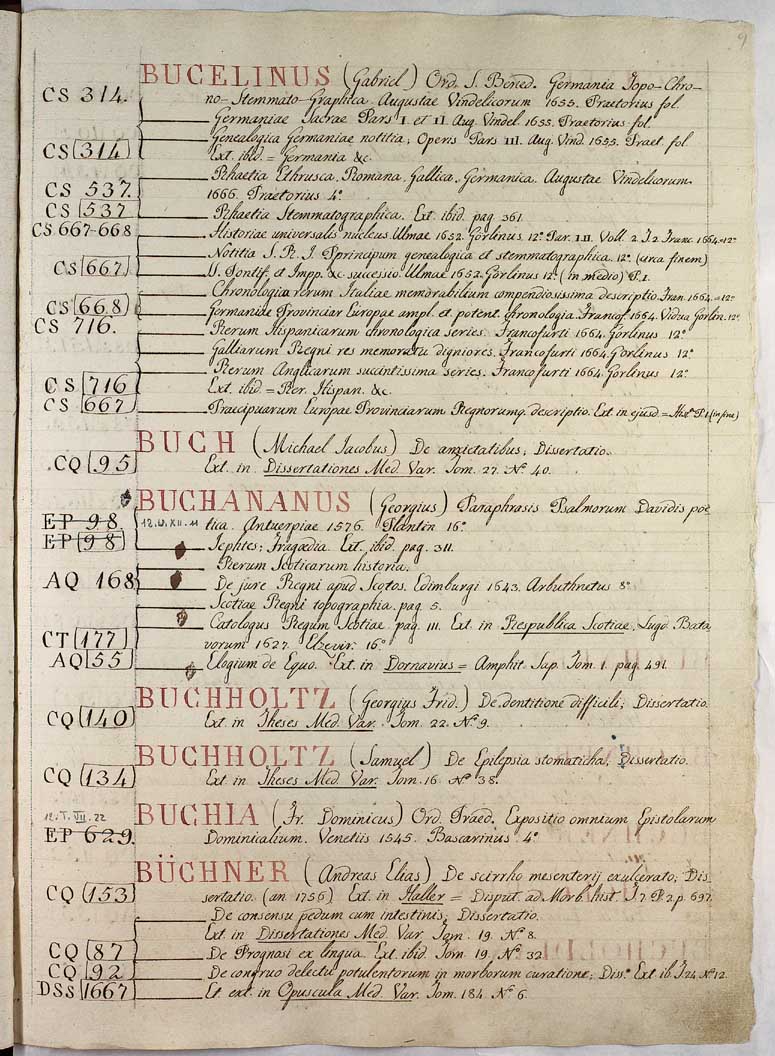 9
BUCELINUS (Gabriel) Ord. S. Bened. Germania Topo-Chro-
CS 314. no-Stemmato-Graphica. Augustae Vindelicorum 1655. Praetorius fol.
Germaniae Sacrae Pars I. et II. Aug. Vindel. 1655. Praetorius fol.
Genealogica Germaniae notitia; Operis Pars III. Aug. Vind. 1655. Praet. fol.
CS 314 Ext. ibid. = Germania &c.
Rhaetia Ethrusca, Romana, Gallica, Germanica. Augustae Vindelicorum
CS 537. 1666. Praetorius 4°
CS 537 Rhaetia Stemmatographica. Ext. ibid. pag. 361.
CS 667-668 Historiae universalis nucleus. Ulmae 1652. Görlinus. 12° Par. I.II. Voll. 2. T.2 Franc. 1664. = 12°
Notitia S. R. I. Principum genealogica et stemmatographica. 12° (circa finem)
CS 667 S. Pontif. et Impp. &c. sucessio. Ulmae 1652. Görlinus 12° (in medio) P.I.
Chronologia rerum Italiae memorabilium compendiosissima descriptio. Fran. 1664. = 12°
CS 668 Germaniae Provinciar Europae ampl. et potent. chronologia. Francof. 1664. Vidua Görlin. 12°
CS 716. Rerum Hispanicarum chronologica series. Francofurti 1664. Görlinus 12°
Galliarum Regni res memoratu digniores. Francofurti 1664. Gorlinus 12°
Rerum Anglicarum succintissima series. Francofurti 1664. Görlinus 12°
CS 716 Ext. ibid. = Rer. Hispan. &c.
CS 667 Praecipuarum Europae Provinciarum Regnorumq. descriptio. Ext. in ejusd. = Hist. P.I. (in fine)
BUCH (Michael Jacobus) De anxietatibus; Dissertatio.
CQ 95 Ext. in Dissertationes Med. Var. Tom. 27. N° 40.
BUCHANANUS (Georgius) Paraphrasis Psalmorum Davidis poë-
EP 98. 12.W.XII.11 tica. Antuerpiae 1576. Plantin 16°
EP 98 Iephtes; Tragoedia. Ext. ibid. pag. 311.
Rerum Scoticarum historia.
AQ 168 De jure Regni apud Scotos. Edimburgi 1643. Arbuthnetus 8°
Scotiae Regni topographia. pag. 5.
Catologus Regum Scotiae. pag. 111. Ext. in Respublica Scotiae. Lugd. Bata-
CT 177 vorum 1627. Elzevir. 16°
AQ 55 Elogium de Equo. Ext. in Dornavius = Amphit. Sap. Tom. 1. pag. 491.
BUCHHOLTZ (Georgius Frid.) De dentitione difficili; Dissertatio.
CQ 140 Ext. in Theses Med. Var. Tom. 22. N° 9.
BUCHHOLTZ (Samuel) De Epilepsia stomaticha, Dissertatio.
CQ 134 Ext. in Theses Med. Var. Tom. 16. N° 38.
BUCHIA (Fr. Dominicus) Ord. Praed. Expositio omnium Epistolarum
12.T.VII.22
EP 629. Dominicalium. Venetiis 1545. Bascarinus 4°
BÜCHNER (Andreas Elias) De scirrho mesenterij exulcerato; Dis-
CQ 153 sertatio. (an 1756) Ext. in Haller = Disput. ad Morb. hist. T.7. P.2. p. 697.
De consensu pedum cum intestinis; Dissertatio.
Ext. in Dissertationes Med. Var. Tom. 19. N° 8.
CQ 87 De Prognosi ex lingua. Ext. ibid. Tom. 19. N° 32.
CQ 92 De congruo delectu potulentorum in morborum curatione; Diss.° Ext. ib. T.24. N° 12.
DSS 1667 Et ext. in Opuscula Med. Var. Tom. 184. N° 6.